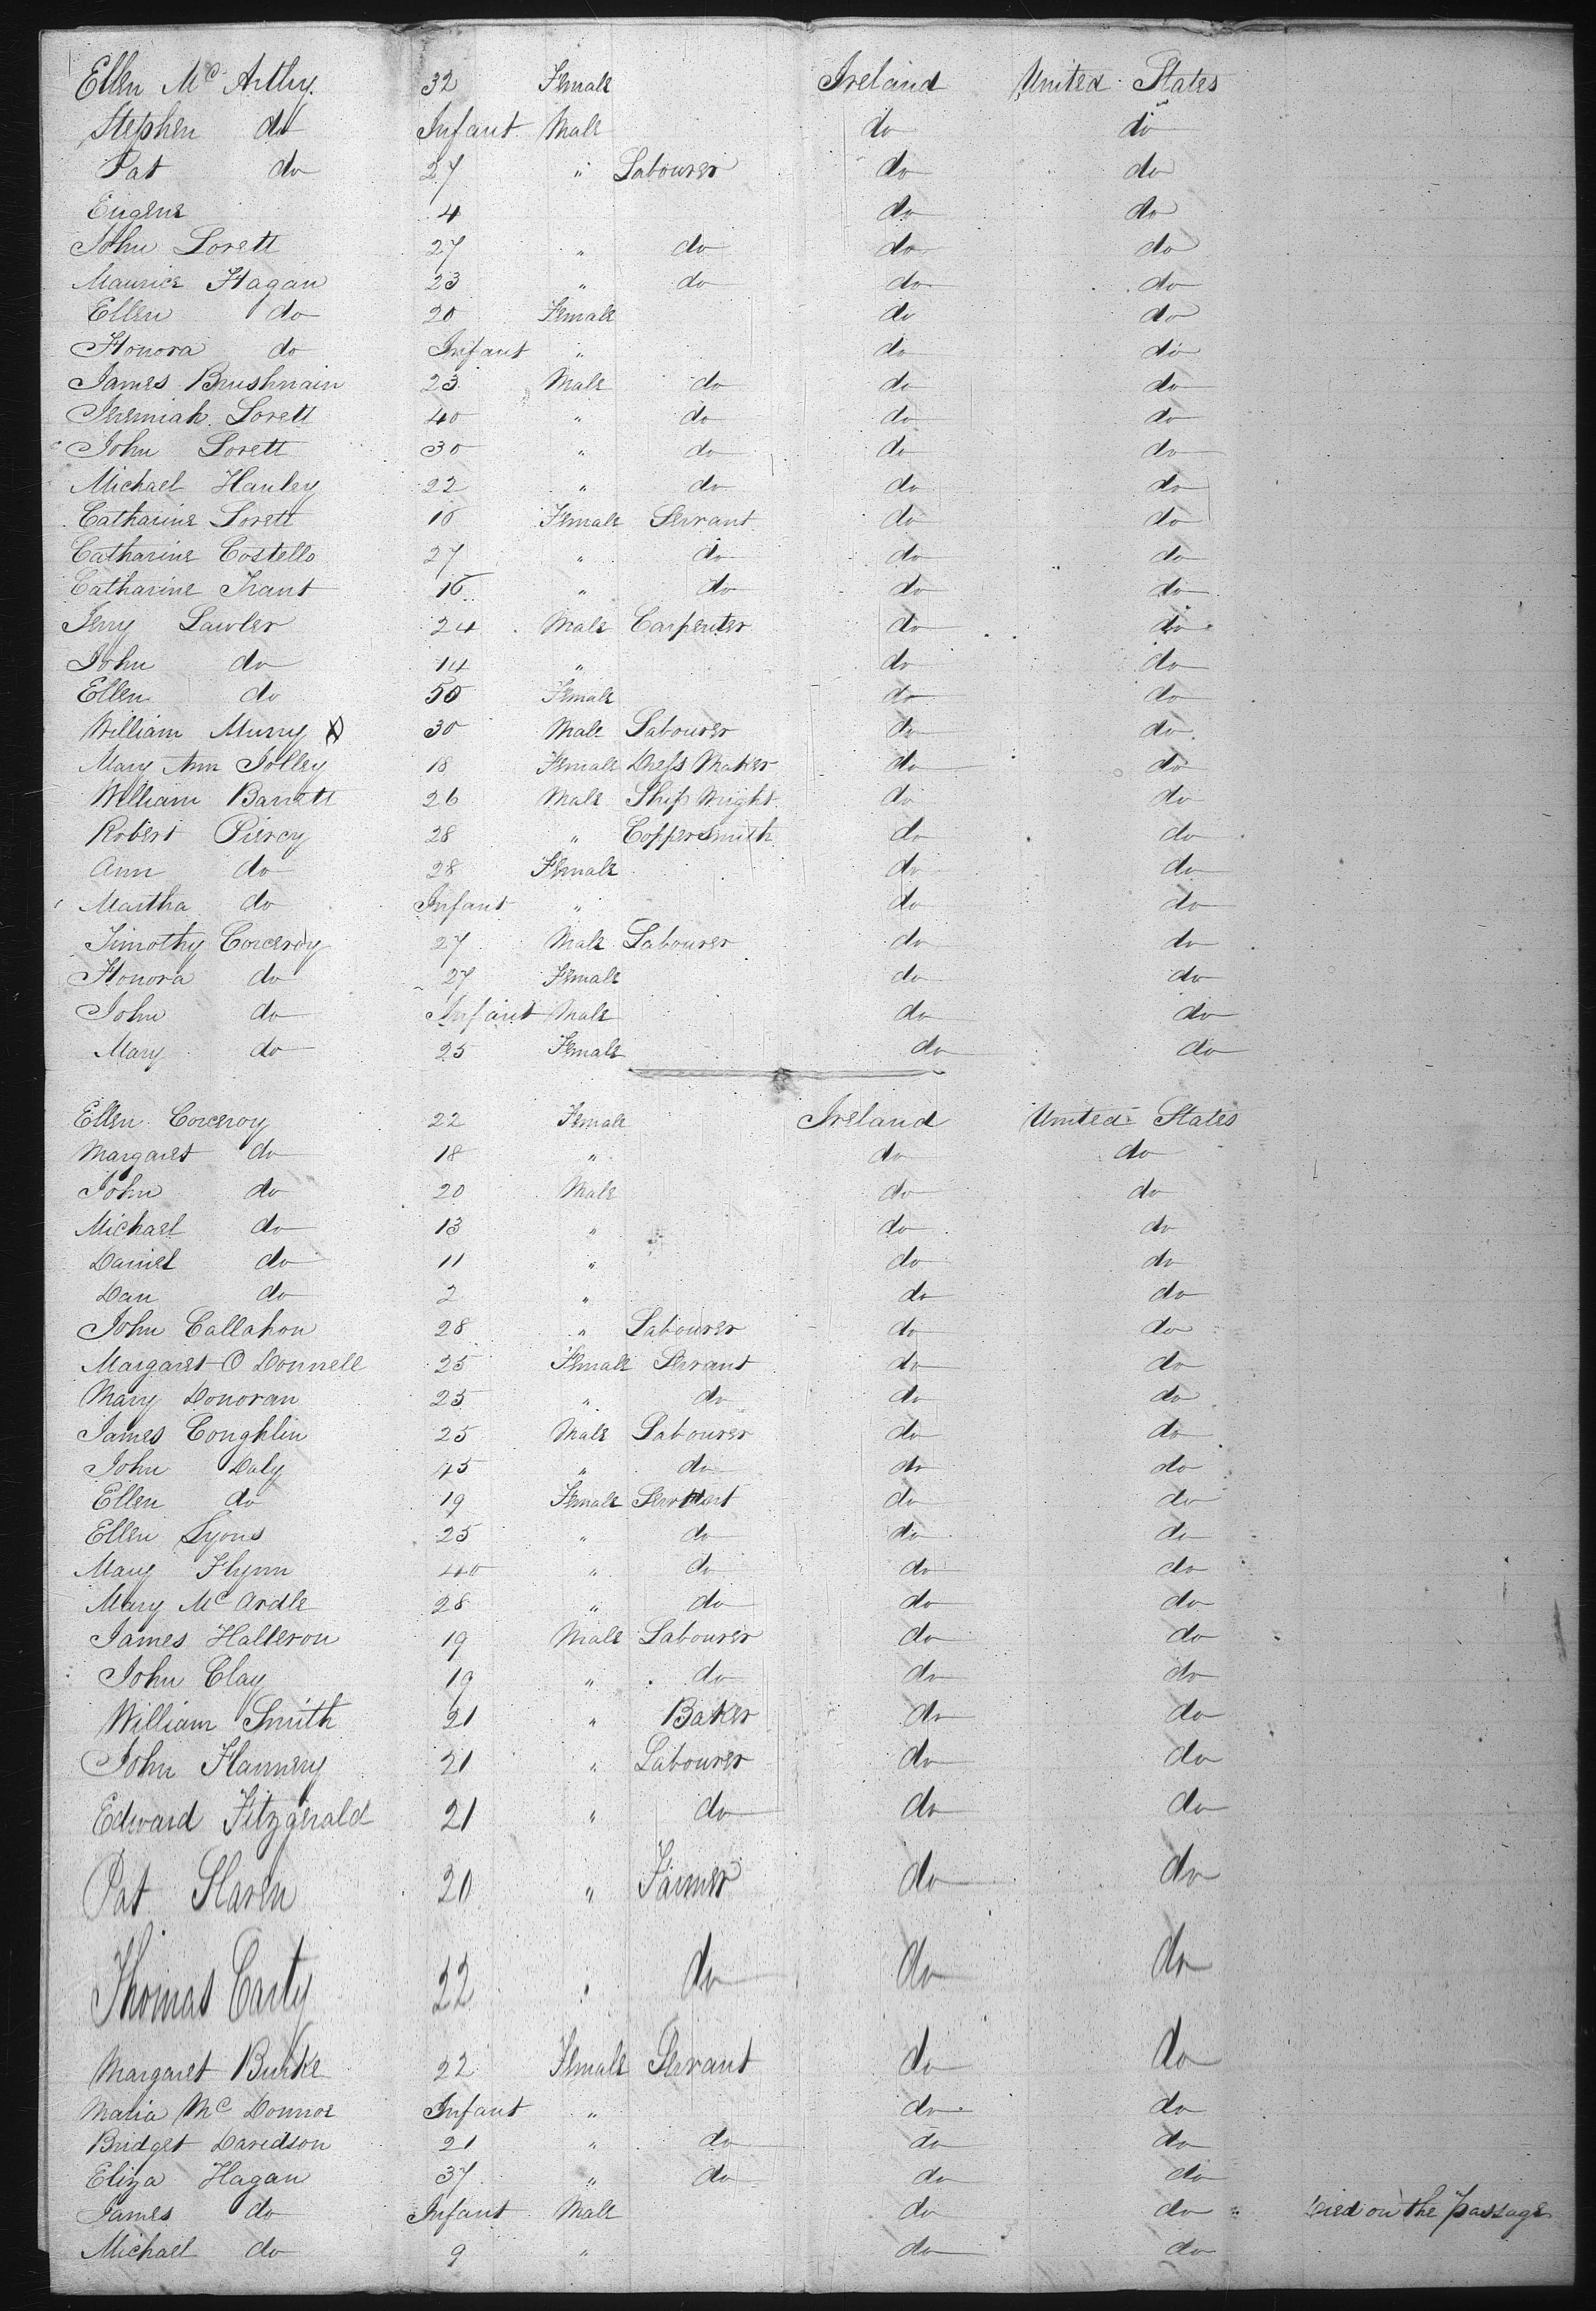 Ellen Mc Arthy. 32 Female Ireland United States
Stephen do Infant Male do do
Pat do 27 " Labourer do do
Eugene 4 do do
John Lovett 27 " do do do
Maurice Hagan 23 " do do do
Ellen do 20 Female do do
Honora do Infant " do do
James Brushnain 23 Male do do do
Jeremiah Lovett 40 " do do do
John Lovett 30 " do do do
Michael Hanley 22 " do do do
Catharine Lovett Female Servant do do
Catharine Costello 27 " do do do
Catharine Trant " do do do
Jerry Lawler 24 Male Carpenter do do
John do 14 " do do
Ellen do 50 Female do do
William Murry 30 Male Labourer do do
Mary Ann Jolley 18 Female Dress Maker do do
William Barrett 26 Male Ship Wright do do
Robert Piercy 28 " Coppersmith do do
Ann do 28 Female do do
Martha do Infant " do do
Timothy Corceroy 27 Male Labourer do do
Honora do 27 Female do do
John do Infant Male do do
Mary do 25 Female do do
Ellen Corceroy 22 Female Ireland United States
Margaret do 18 " do do
John do 20 Male do do
Michael do 13 " do do
Daniel do 11 " do do
Dan do 2 " do do
John Callahon 28 " Labourer do do
Margaret O Donnell 25 Female Servant do do
Mary Donovan 25 " do do do
James Coughlin 25 Male Labourer do do
John Daly 45 " do do do
Ellen do 19 Female Servant do do
Ellen Lyons 25 " do do do
Mary Flynn 40 " do do do
Mary Mc Ardle 28 " do do do
James Halleron 19 Male Labourer do do
John Clay 19 " do do do
William Smith 21 " Baker do do
John Flannery 21 " Labourer do do
Edward Fitzgerald 21 " do do do
Pat Slaven 20 " Farmer do do
Thomas Carty 22 " do do do
Margaret Burke 22 Female Servant do do
Maria Mc Donnoe Infant " do do
Bridget Davidson 21 " do do do
Eliza Hagan 37 " do do do
James do Infant Male do do Died on the passage
Michael do 9 " do do